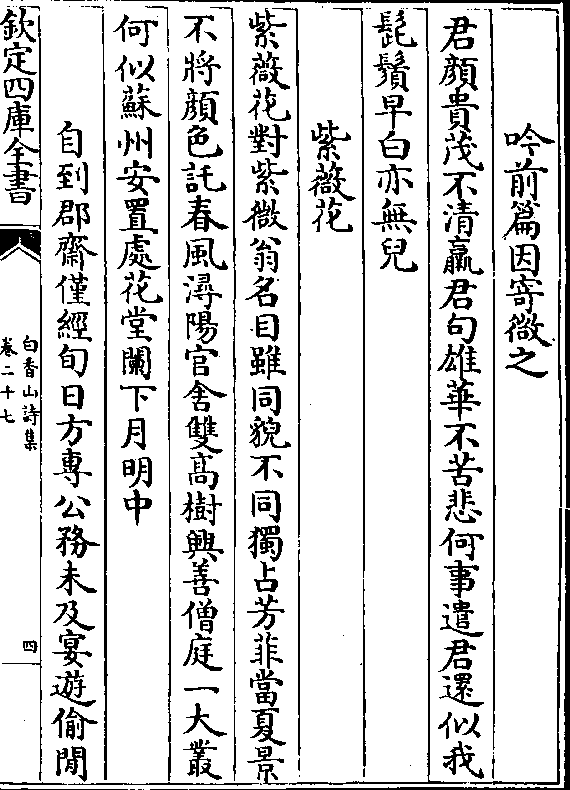 吟前篇因寄微之
君顔貴茂不清羸君句雄華不苦悲何事遣君還似我
髭鬚早白亦無兒
紫薇花
紫薇花對紫微翁名目雖同貌不同獨占芳菲當夏景
不將顔色託春風潯陽官舍雙髙樹興善僧庭一大叢
何似蘇州安置處花堂闌下月明中
自到郡齋僅經旬日方專公務未及宴遊偷閒
欽定四庫全書
白香山詩集
卷二十七
四